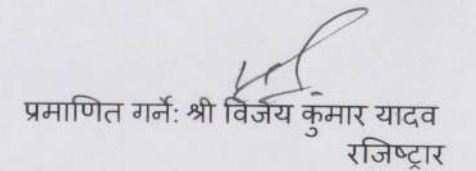 प्रमाणित गर्ने: श्री विजय कुमार यादव
रजिष्ट्रार